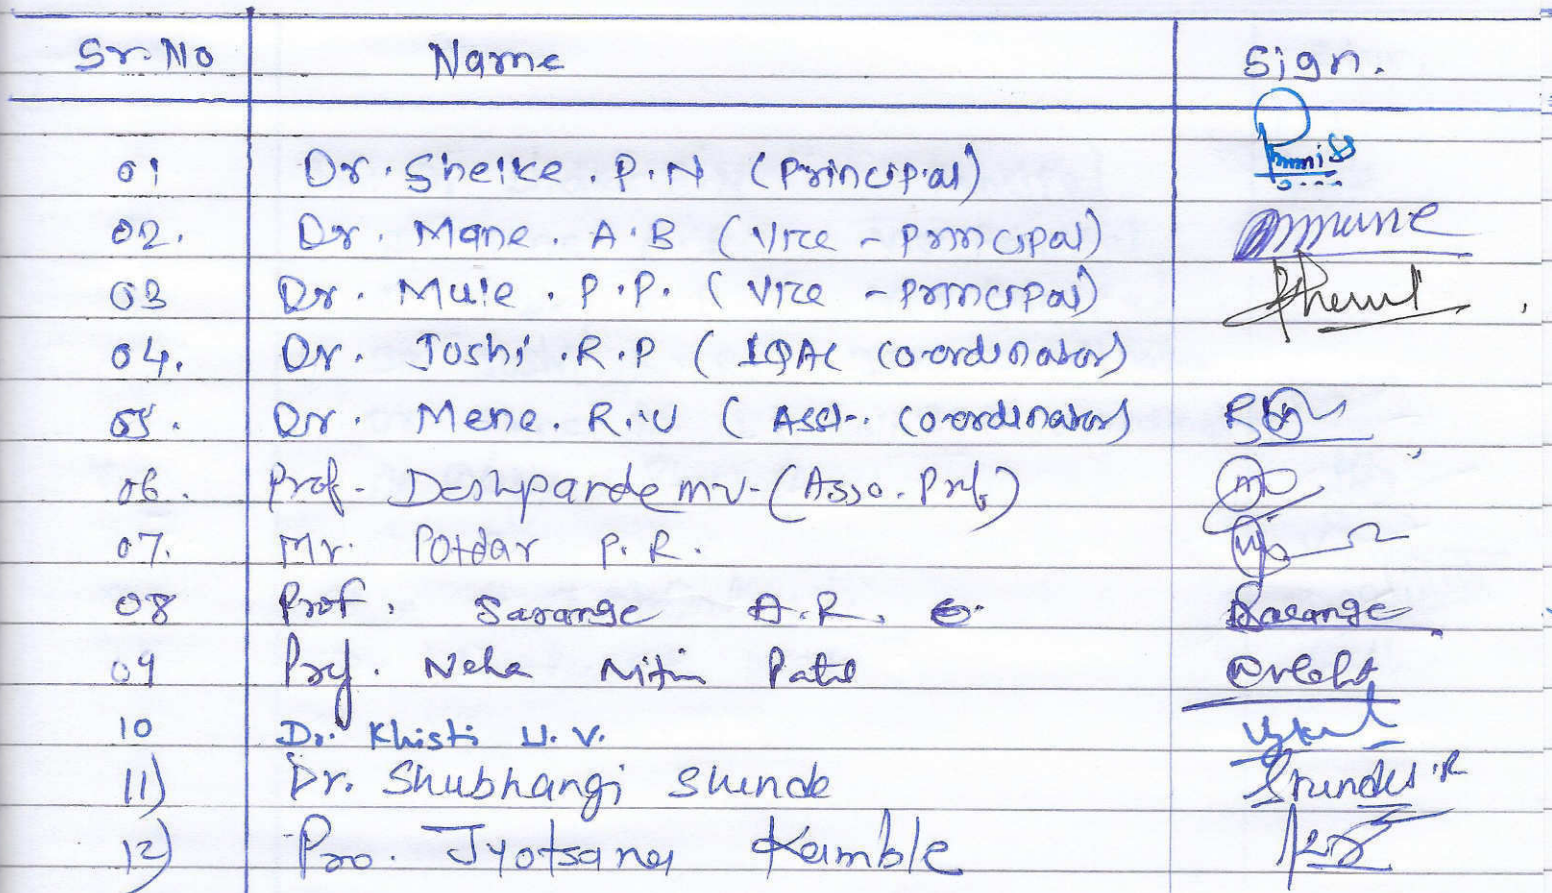 Sr.No Name Sign.
01 Dr. Sheike. P. N (Principal)
02. Dr. Mane. A.B (Vice - Principal) mane
03 Dr. Mule. P.P. (Vice - Principal)
04. Dr. Joshi. R.P (IQAC Co-ordinator)
05. Dr. Mene. R.U (Asst. Co-ordinator)
06. Prof. Deshpande M.V. (Asso. Prof)
07. Mr. Potdar P.R.
08 Prof. Sarange A.R. Sarange
09 Prof. Neha Nitin Patil
10 Dr. Khisti U.V.
11) Dr. Shubhangi Shinde Shinde S.R
12) Pro. Jyotsana Kamble